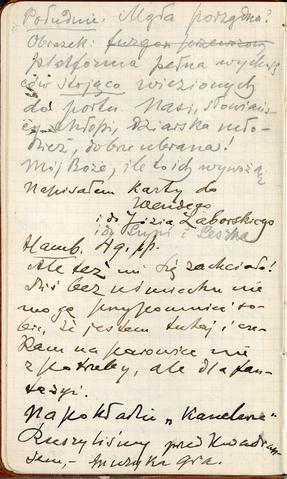 Południe. Mgła porządna?
Obrazek: furgon
platforma pełna wychodź
ców stojąco wiezionych
do portu. Nasi, słowiańs-
cy chłopi, dziarska mło-
dzież, dobrze ubrana!
Mój Boże, ile to ich wywożą.
Napisałem karty do
i do Józia Zaborskiego
i do Lusi i Leszka
Hamb. Ag. pp.
Ale też mi się zachciało!
Dziś bez uśmiechu nie
mogę przypomnieć so-
bie, że jestem tutaj i cze-
kam na parowiec nie
z potrzeby, ale dla fan-
tazji.
Na pokładzie „Kamelene"
Ruszyliśmy przed kwadran-
sem, – muzyka gra.